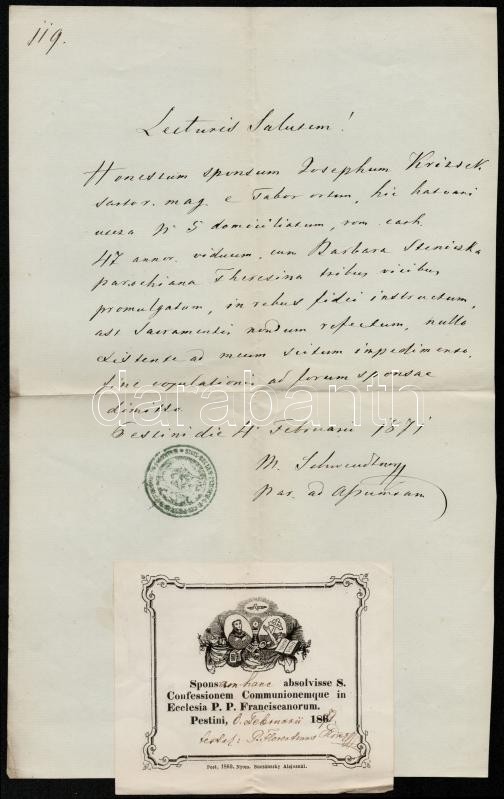 119.
Lecturis Salutem!
Honestum sponsum Josephum Krizsek
sartor. mag. e Tabor ortum, hic hatvani
utcza No 5 domiciliatum, rom. cath.
47 annor. viduum, cum Barbara
parochiana Theresina tribus vicibus
promulgatum, in rebus fidei instructum,
ast Sacramentis nondum refectum, nullo
obstente ad meum scitum impedimento,
fine copulationis ad forum sponsae
dimitto
Pestini die 4 Februarii 1871
M.
par. ad
darabanth
Sponsam hanc absolvisse S.
Confessionem Communionemque in
Ecclesia P. P. Franciscanorum.
Pestini, Februarii 186
testor: P. Florentinus
Pest, 1860. Nyom. Alajosnál.